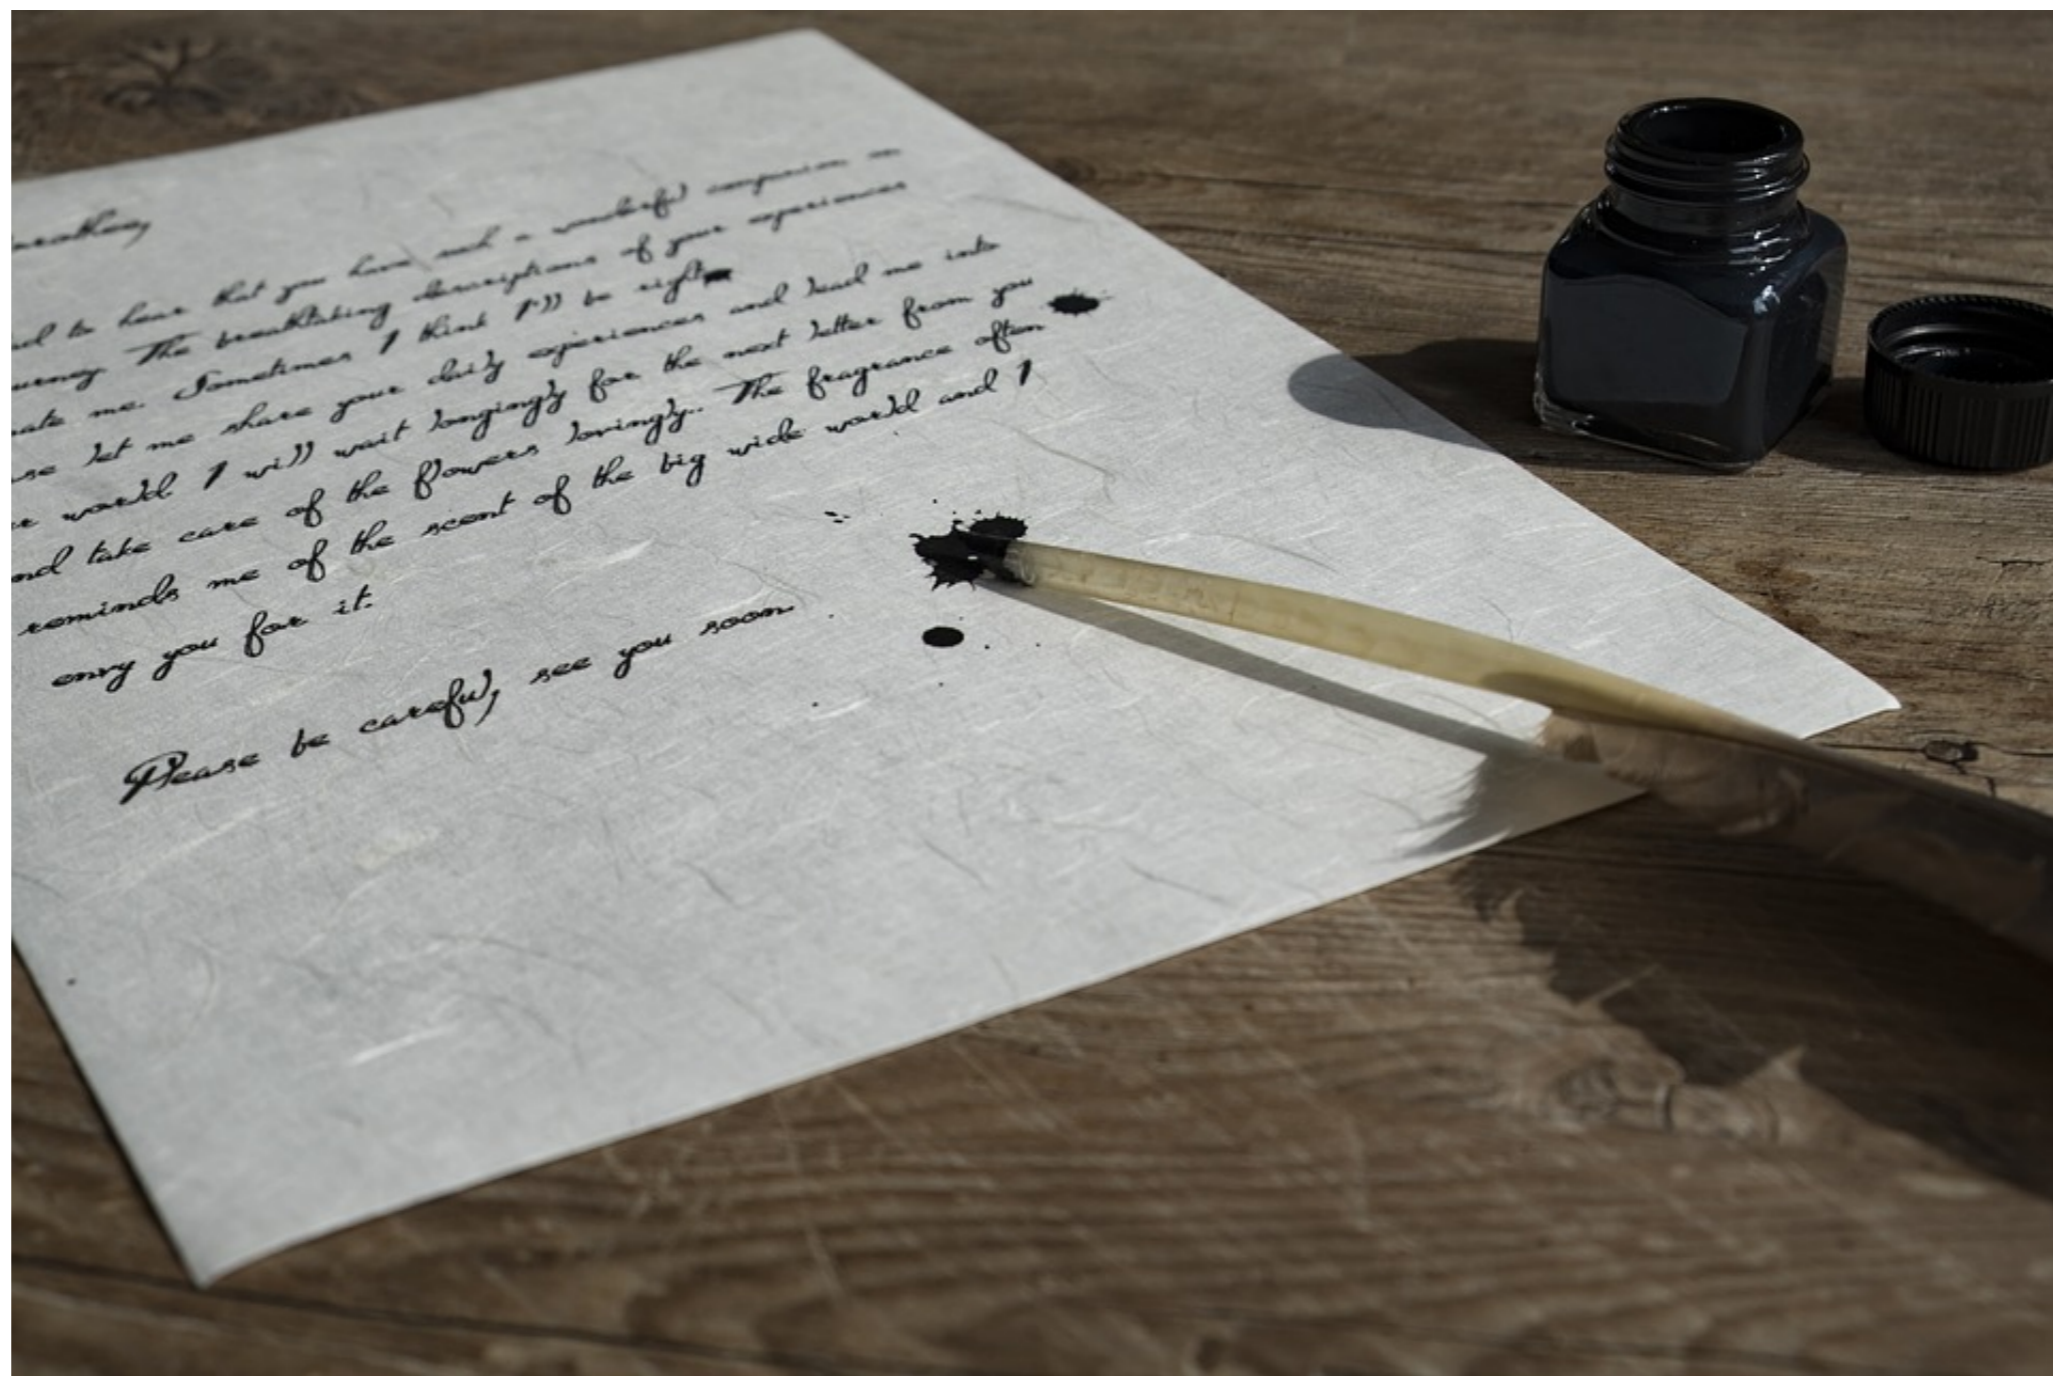 to hear that you have such a wonderful companion on
The breathtaking descriptions of your experiences
me. Sometimes I think I'll be right
let me share your daily experiences and lead me into
world. I will wait longingly for the next letter from you
take care of the flowers lovingly.. The fragrance often
reminds me of the scent of the big wide world and I
envy you for it.
Please be careful, see you soon.